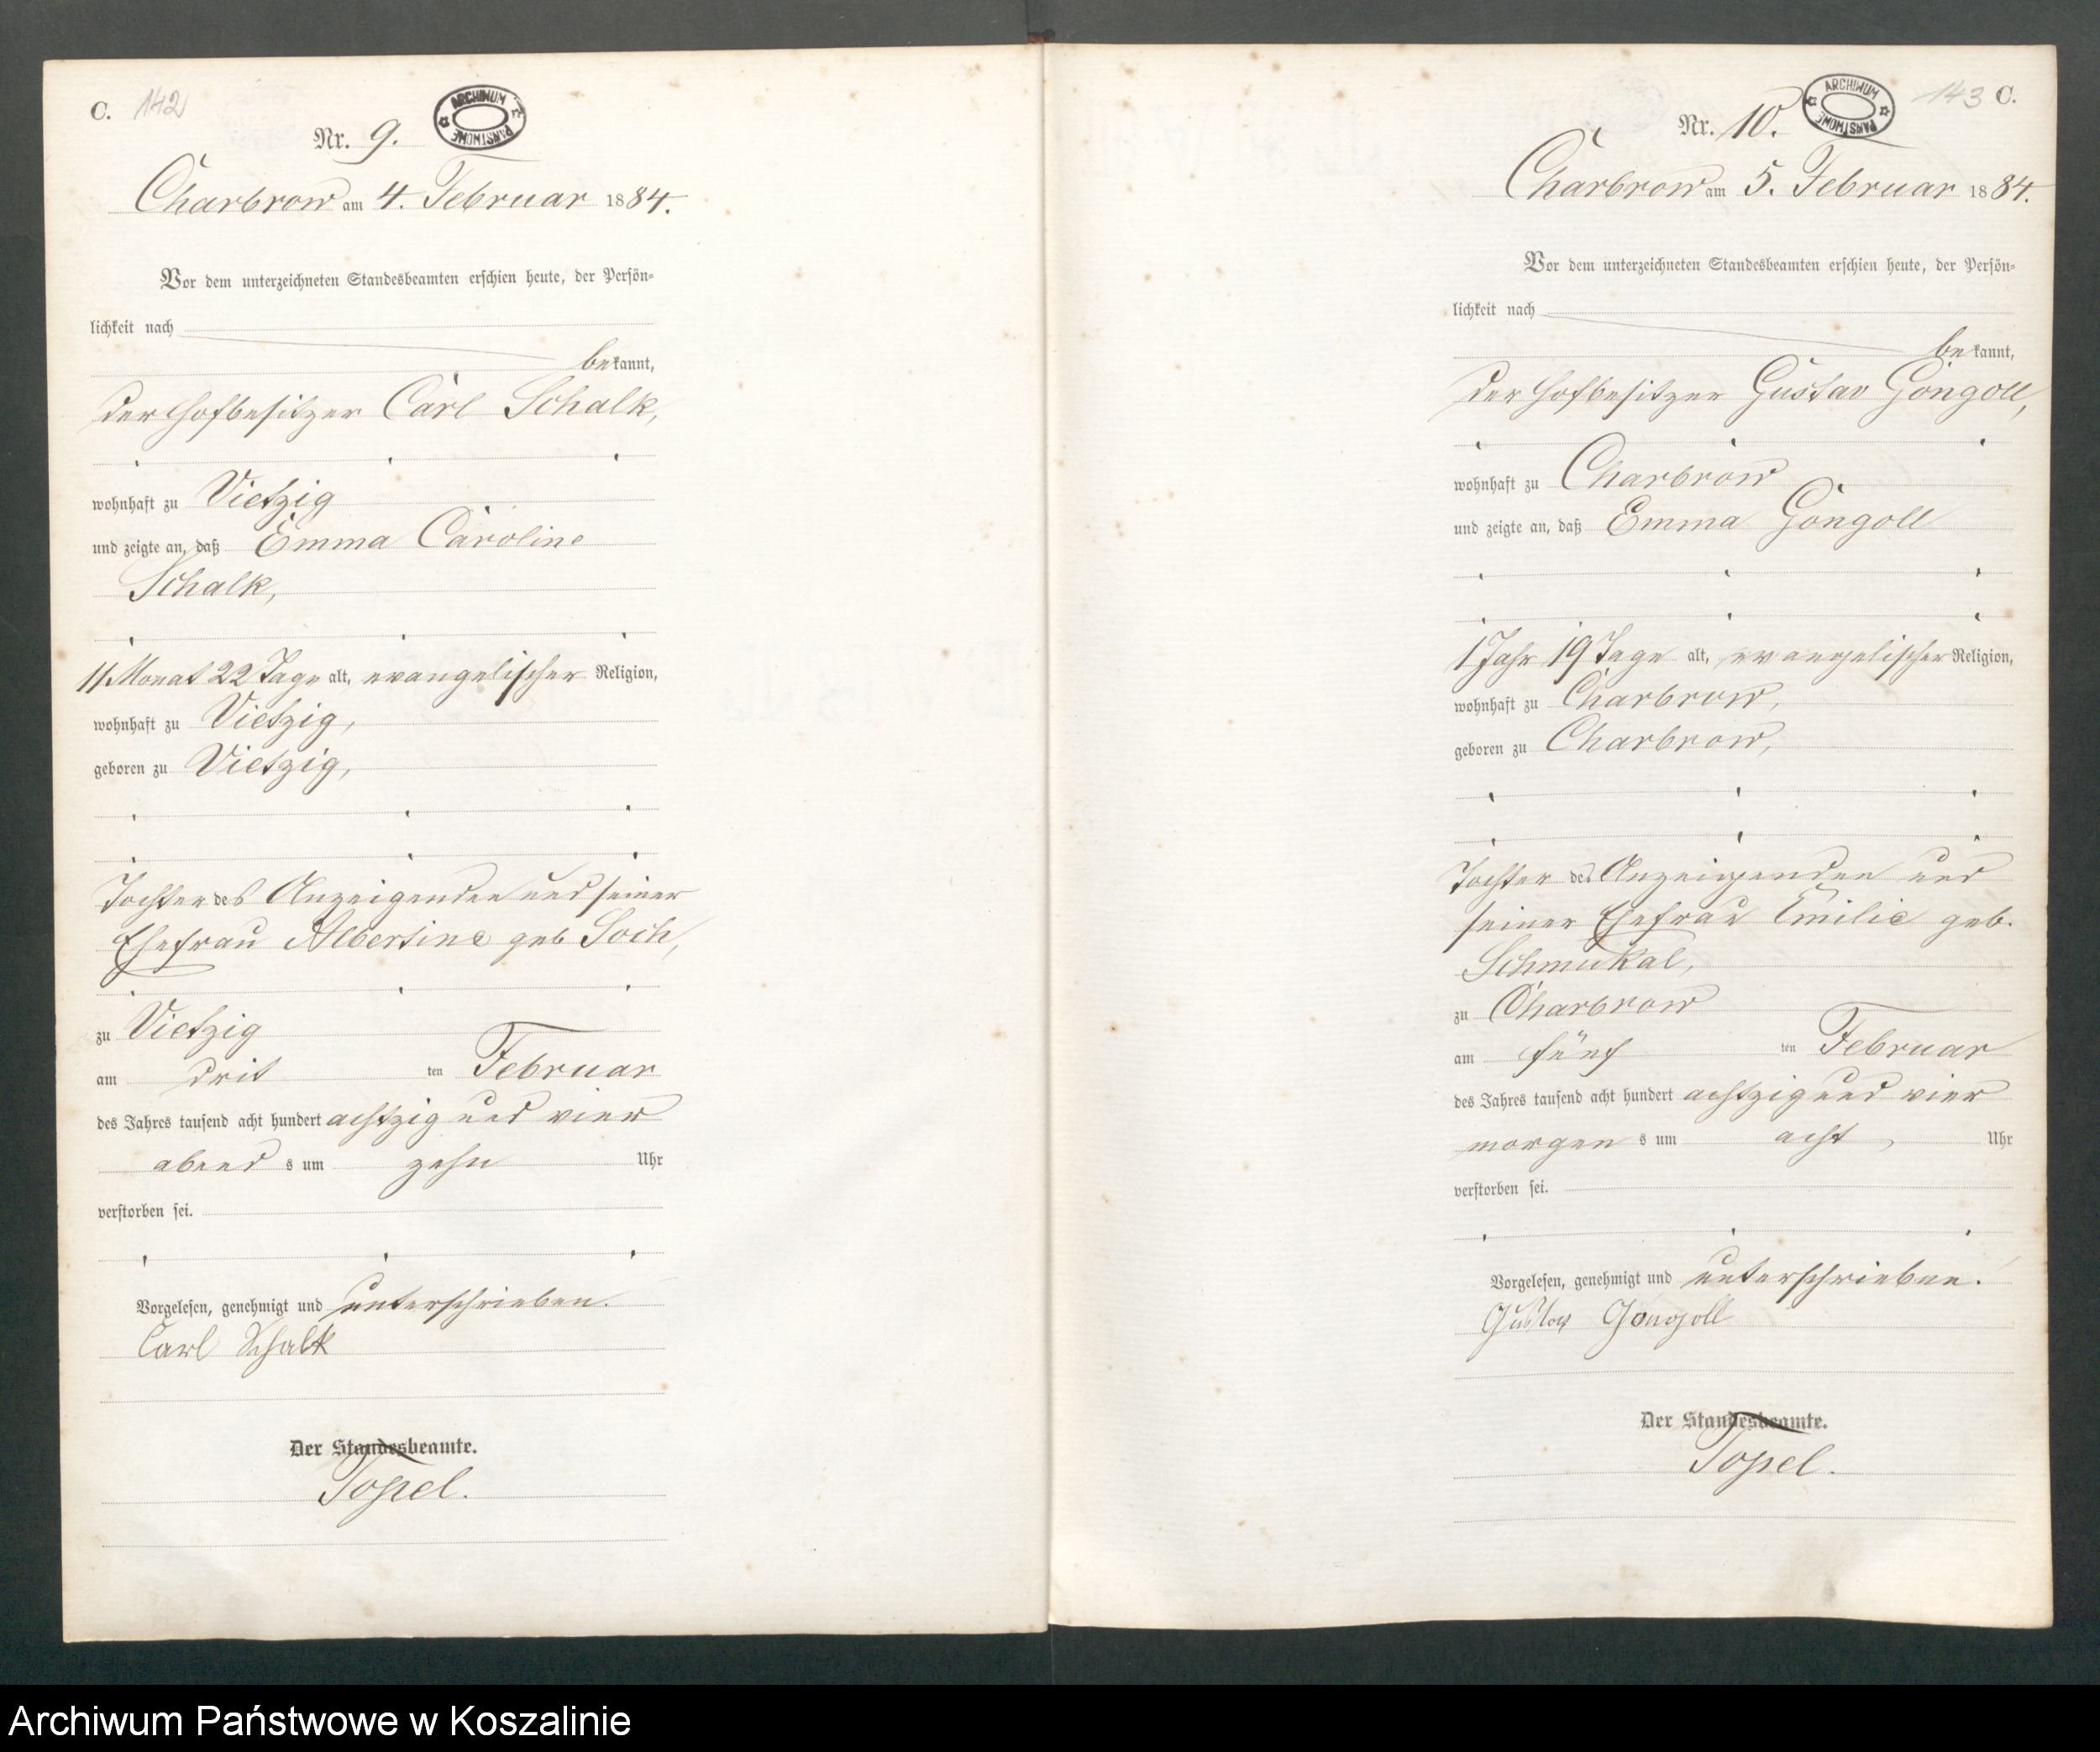 C. 142
Nr. 9.
ARCHIWUM PAŃSTWOWE
Charbrow am 4. Februar 1884.
Vor dem unterzeichneten Standesbeamten erschien heute, der Persön-
lichkeit nach
bekannt,
der Hofbesitzer Carl Schalk,
wohnhaft zu Vietzig
und zeigte an, daß Emma Caroline
Schalk,
11 Monat 22 Tage alt, evangelischer Religion,
wohnhaft zu Vietzig,
geboren zu Vietzig,
Tochter des Anzeigenden und seiner
Ehefrau Albertine geb Soch,
zu Vietzig
am drit ten Februar
des Jahres tausend acht hundert achtzig und vier
abend s um zehn Uhr
verstorben sei.
Vorgelesen, genehmigt und unterschrieben.
Carl Schalk
Der Standesbeamte.
Topel.
143 C.
Nr. 10.
ARCHIWUM PAŃSTWOWE
Charbrow am 5. Februar 1884.
Vor dem unterzeichneten Standesbeamten erschien heute, der Persön-
lichkeit nach
bekannt,
der Hofbesitzer Gustav Gongoll,
wohnhaft zu Charbrow
und zeigte an, daß Emma Gongoll
1 Jahr 19 Tage alt, evangelischer Religion,
wohnhaft zu Charbrow,
geboren zu Charbrow,
Tochter des Anzeigenden und
seiner Ehefrau Emilie geb.
Schmukal,
zu Charbrow
am fünf ten Februar
des Jahres tausend acht hundert achtzig und vier
morgen s um acht, Uhr
verstorben sei.
Vorgelesen, genehmigt und unterschrieben.
Gustav Gongoll
Der Standesbeamte.
Topel.
Archiwum Państwowe w Koszalinie